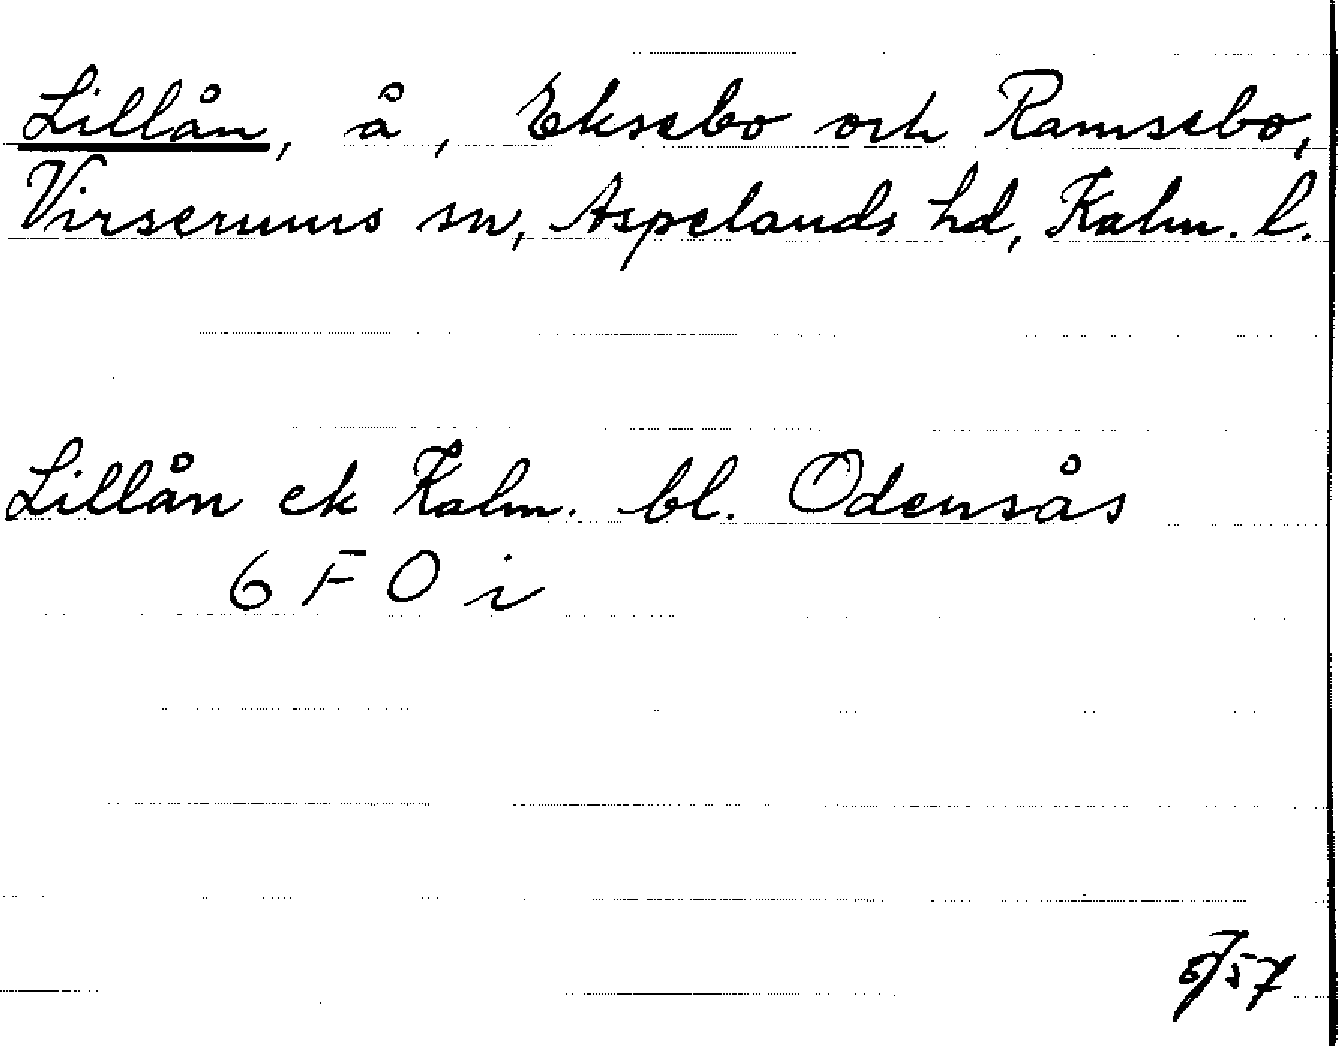 Lillån, å, Eksebo och Ramsebo,
Virserums sn, Aspelands hd, Kalm. l.
Lillån ek Kalm. bl. Odensås
6 F O i